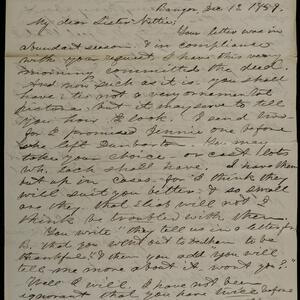 Bangor, Dec 12 1859.
My dear Sister Nettie:
Your letter was in
abundant season. & in compliance
with your request, I have this very
morning committed the deed.
And now such as it is, you shall
have it. Its not a very ornamental
picture. but it may serve to tell
you how I look. I send two
for I promised Jennie one before
she left Dunbarton. You may
take your choice, or cast lots
wh. each shall have. I have them
put up in cases. for I think they
will suit you better. & so small
are they that Eliab will not I
think be troubled with them.
You write "they tell us in a letter fr
B. that you went out to Dedham to be
thankful." & then you add you will
tell me more about it won't you?"
Well I will, I have not been
ignorant that you have before